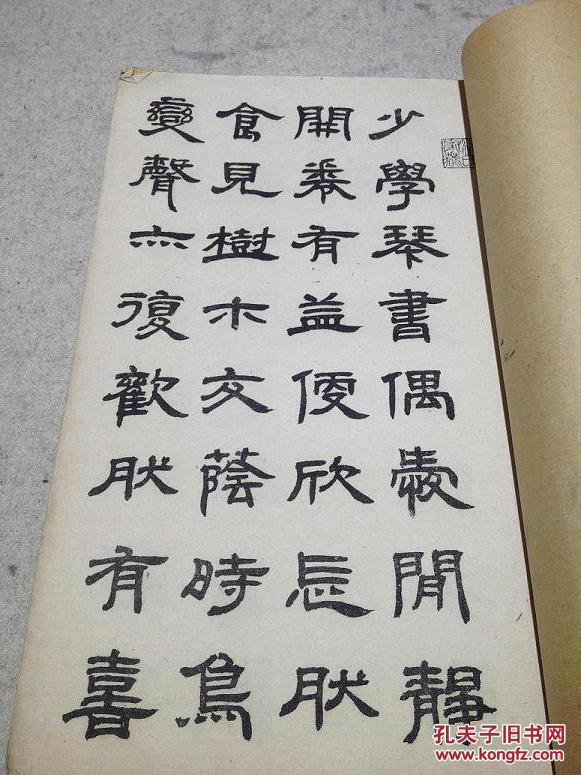 少學琴書偶愛閒靜
開卷有益便欣忘肰
食見樹木交蔭時鳥
變聲亦復歡肰有喜
孔夫子旧书网
www.kongfz.com